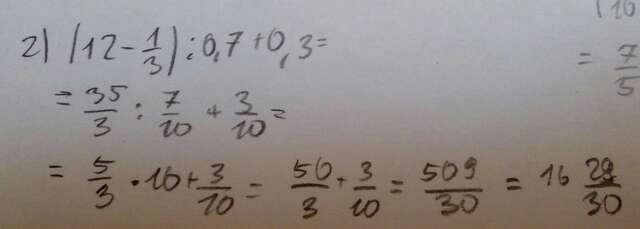 2) (12 - 1/3) : 0,7 + 0,3 =
= 35/3 : 7/10 + 3/10 =
= 5/3 · 10 + 3/10 = 50/3 + 3/10 = 509/30 = 16 29/30
(10
= 7/5